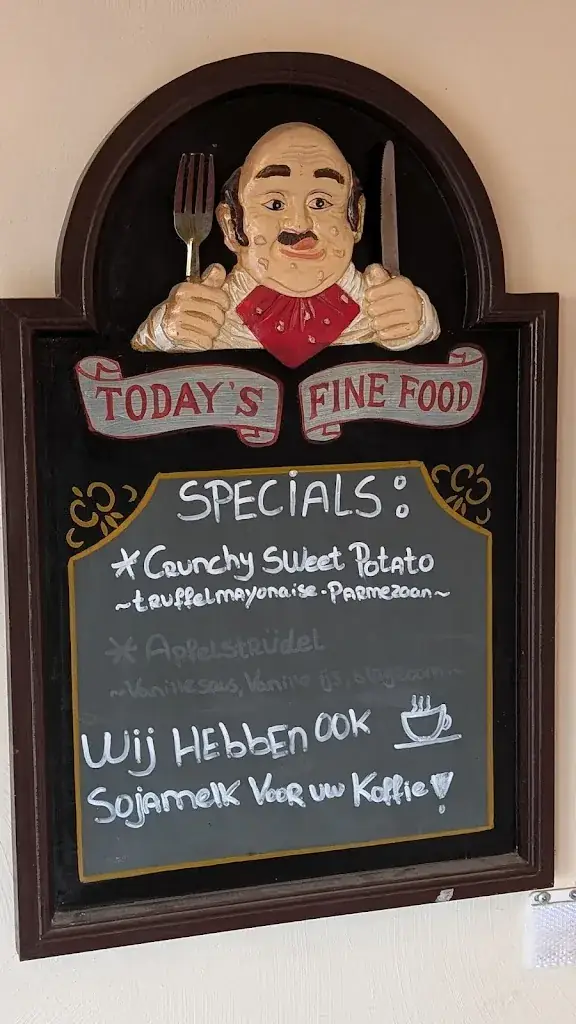 TODAY'S FINE FOOD
SPECIALS:
* Crunchy Sweet Potato
~truffelmayonaise - Parmezaan~
* Apfelstrüdel
~Vanillesaus, Vanille ijs, slagroom~
Wij Hebben ook
Sojamelk Voor uw Koffie!